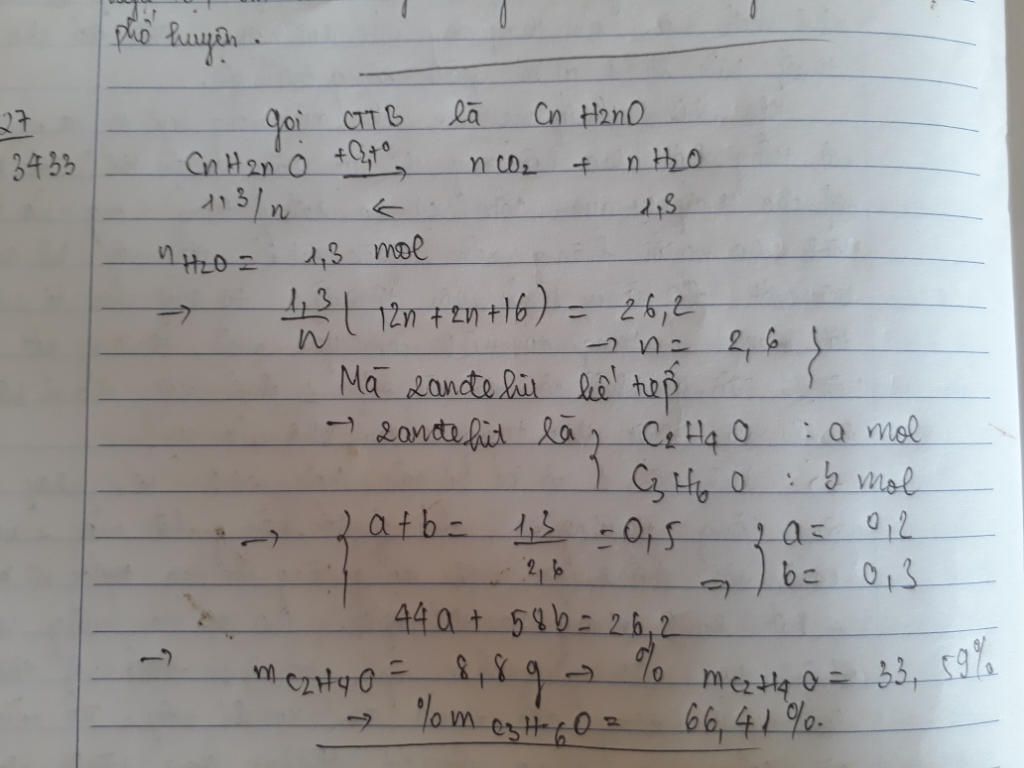 phố huyện.
27
3433
gọi CTTB là CnH2nO
CnH2nO +O2,t° → nCO2 + nH2O
1,3/n ← 1,3
nH2O = 1,3 mol
→ 1,3/n (12n + 2n + 16) = 26,2
→ n = 2,6 }
Mà 2anđehit kế tiếp
→ 2anđehit là } C2H4O : a mol
C3H6O : b mol
→ } a + b = 1,3/2,6 = 0,5 } a = 0,2
→ b = 0,3
44a + 58b = 26,2
→ mC2H4O = 8,8g → % mC2H4O = 33,59%
→ %mC3H6O = 66,41%.